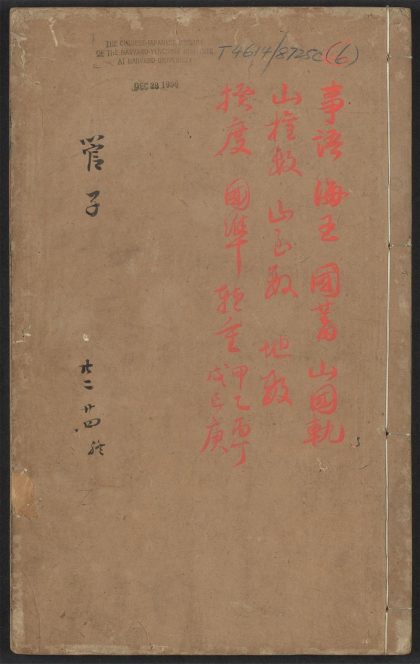 THE CHINESE-JAPANESE LIBRARY
OF THE HARVARD-YENCHING INSTITUTE
AT HARVARD UNIVERSITY
DEC 28 1936
T4614/8725c (6)
事語 海王 國蓄 山國軌
山權數 山至數 地數
揆度 國準 輕重 甲乙丙丁
戊己庚
管子
廿二 廿四 終